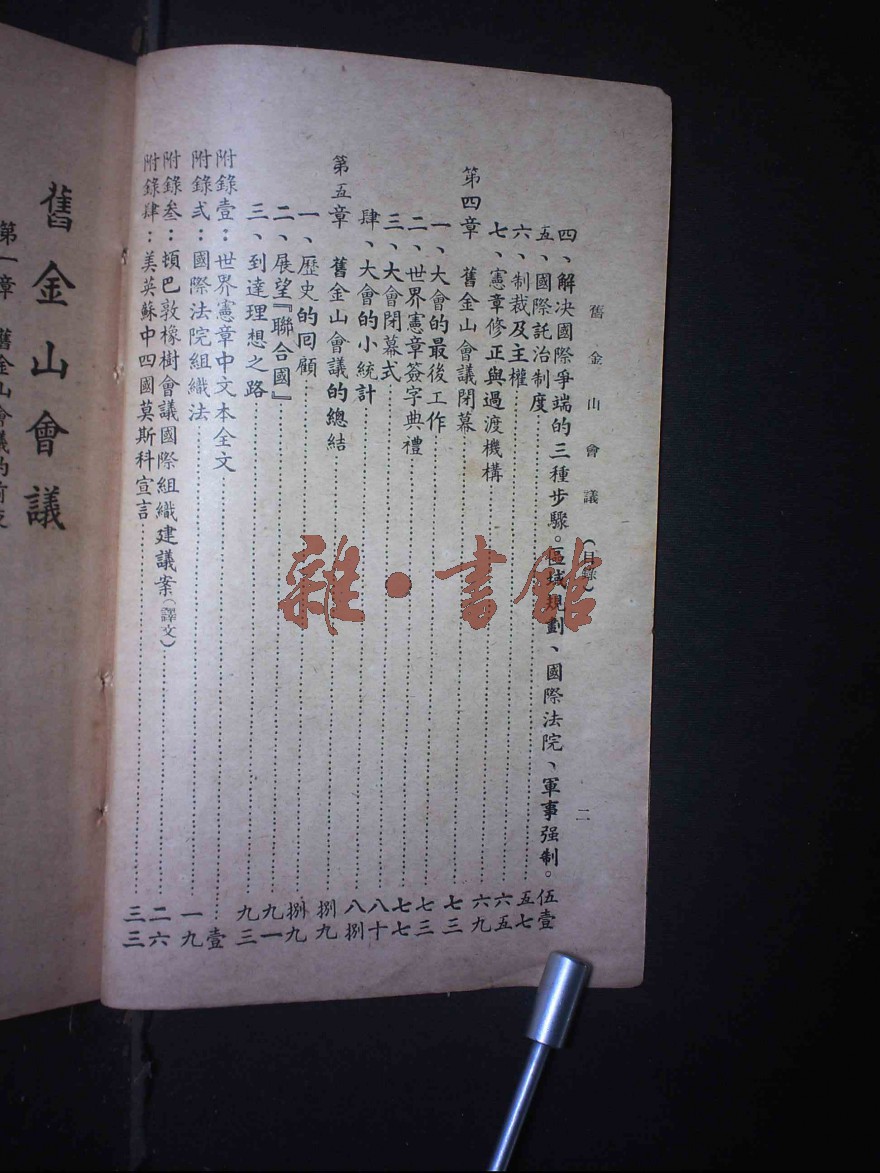 舊金山會議（目錄） 二
四、解決國際爭端的三種步驟。區域規劃、國際法院、軍事强制。伍壹
五、國際託治制度……五七
六、制裁及主權……六五
七、憲章修正與過渡機構……六九
第四章 舊金山會議閉幕……七三
一、大會的最後工作……七三
二、世界憲章簽字典禮……七七
三、大會閉幕式……八十
肆、大會的小統計……八捌
第五章 舊金山會議的總結……捌九
一、歷史的回顧……捌九
二、展望『聯合國』……九一
三、到達理想之路……九三
附錄壹：世界憲章中文本全文……壹
附錄弍：國際法院組織法……一九
附錄叁：頓巴敦橡樹會議國際組織建議案（譯文）……二六
附錄肆：美英蘇中四國莫斯科宣言……三三
舊金山會議
第一章 舊金山會議的
雜·書館